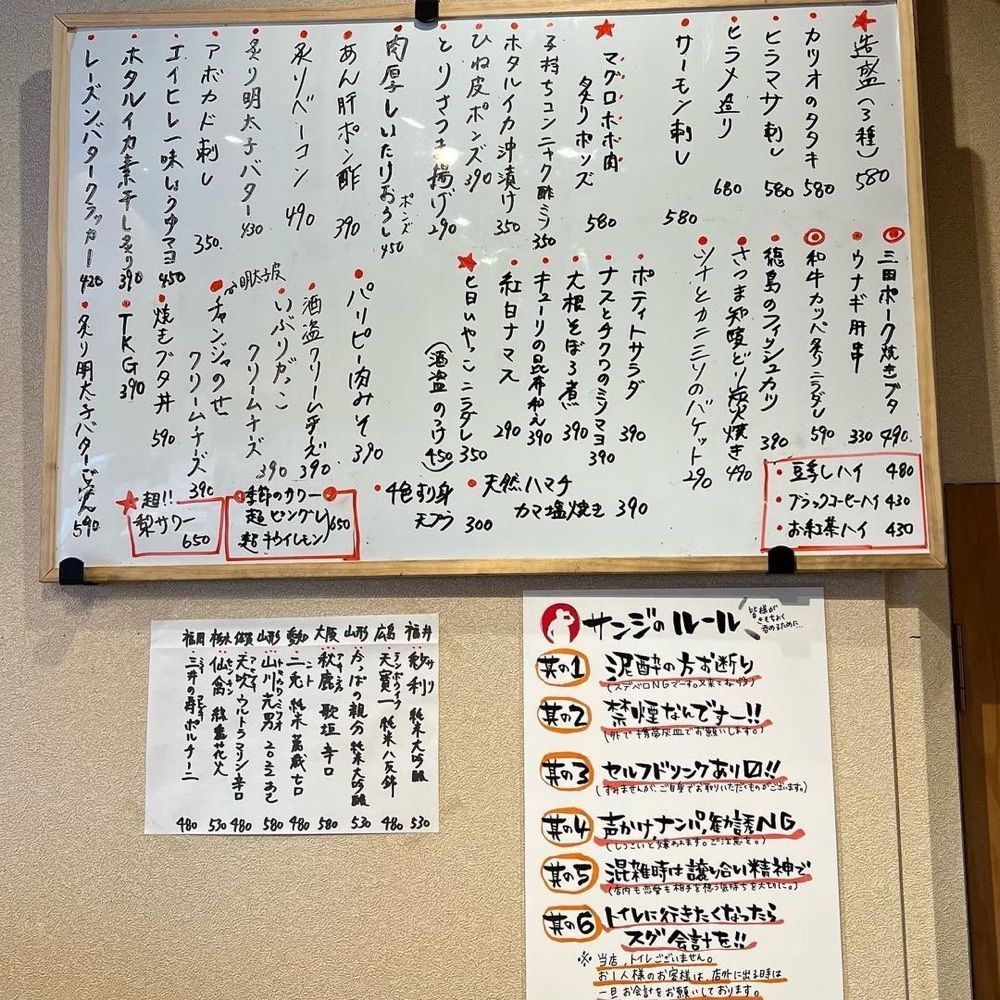 造盛(3種) 580
カツオのタタキ 580
ヒラマサ刺し 580
ヒラメ造り 680
サーモン刺し 580
マグロホホ肉
炙りポンズ 580
子持ちコンニャク酢ミソ 350
ホタルイカ沖漬け 350
ひね皮ポンズ 390
とりさつま揚げ 290
肉厚しいたけおろしポンズ 450
あん肝ポン酢 390
炙りベーコン 490
炙り明太子バター 430
アボカド刺し 350
エイヒレ一味しょうゆマヨ 450
ホタルイカ素干し炙り 390
レーズンバタークラッカー 420
三田ポーク焼きブタ 490
ウナギ肝串 330
和牛カッペ炙りニラダレ 590
徳島のフィッシュカツ 390
さつま知覧どり炭火焼き 490
ツナとカニミソのバケット 290
ポティトサラダ 390
ナスとチクワのミソマヨ 390
大根そぼろ煮 390
キューリの昆布和え 390
紅白ナマス 290
ヒヤいやっこニラダレ 350
(酒盗のっけ 450)
パリピー肉みそ 390
酒盗クリームチーズ 390
いぶりがっこ
クリームチーズ 390
チャンジャのせ
クリームチーズ 390
明太子皮
焼きブタ丼 590
TKG 390
炙り明太子バターごはん 590
豆乳ハイ 480
ブラックコーヒーハイ 430
お紅茶ハイ 430
天然ハマチ
カマ塩焼き 390
4色すり身
天プラ 300
季節のサワー
超ピングレ
超キウイレモン 650
超!!
梨サワー
650
福井 紗利 純米大吟醸 530
広島 天寶一 純米八反錦 480
山形 かっぱの親分 純米大吟醸 530
大阪 秋鹿 歌垣 辛口 580
愛知 二兎 純米 萬歳七〇 480
山形 山川光男 2022あき 580
佐賀 天吹 ウルトラマリン辛口 480
栃木 仙禽 線香花火 530
福岡 三井の寿 ポルチーニ 480
サンジのルール
皆様が
きもちよく
呑めるために…
其の1 泥酔の方お断り
(ステベロNGでーす。又来てね)
其の2 禁煙なんですー!!
(外で携帯灰皿でお願いします。)
其の3 セルフドリンクあり〼!!
(すみませんが、ご自身でお取りいただくものがございます。)
其の4 声かけ,ナンパ,勧誘NG
(しつこいと嫌われます。ご注意を。)
其の5 混雑時は譲り合い精神で
(店内も恋愛も相手を想う気持ちを大切に。)
其の6 トイレに行きたくなったら
スグ会計を!!
※当店、トイレございません。
お1人様のお客様は、店外に出る時は
一旦お会計をお願いしております。